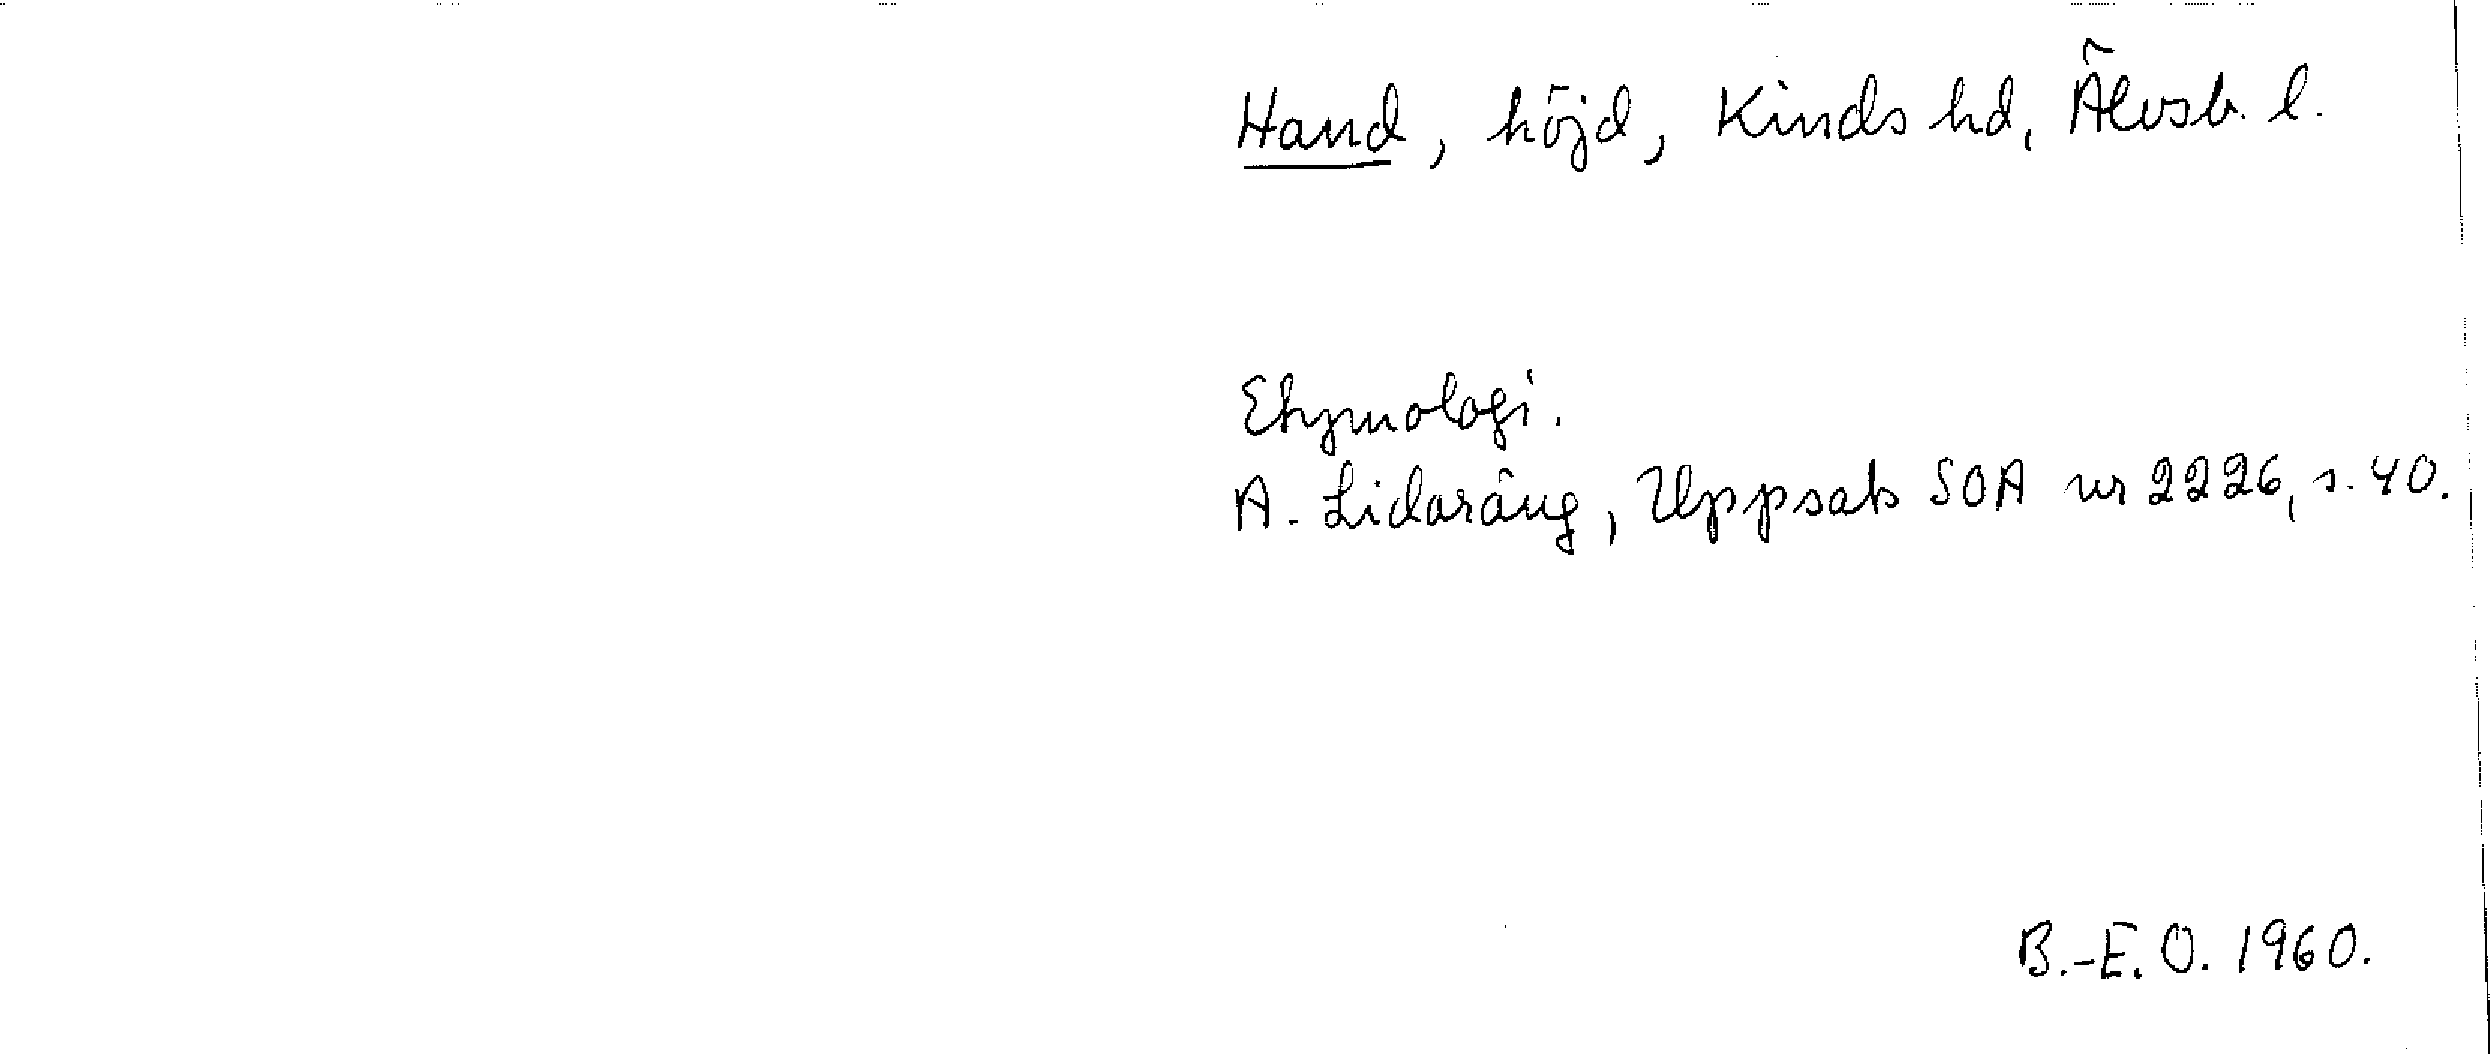 Hand, höjd, Kinds hd, Älvsb. l.
Etymologi.
A. Lidaräng, Uppsats SOA nr 2226, s. 40.
B.-E. O. 1960.